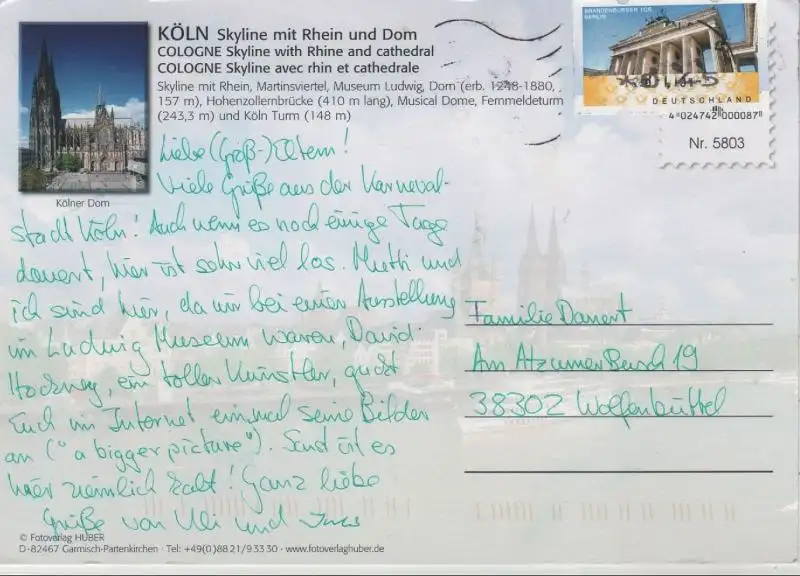 KÖLN Skyline mit Rhein und Dom
COLOGNE Skyline with Rhine and cathedral
COLOGNE Skyline avec rhin et cathedrale
Skyline mit Rhein, Martinsviertel, Museum Ludwig, Dom (erb. 1248-1880,
157 m), Hohenzollernbrücke (410 m lang), Musical Dome, Fernmeldeturm
(243,3 m) und Köln Turm (148 m)
Kölner Dom
BRANDENBURGER TOR
BERLIN
DEUTSCHLAND
4 024742 000087
Nr. 5803
Liebe (Groß-)Eltern!
Viele Grüße aus der Karneval-
stadt Köln! Auch wenn es noch einige Tage
dauert, hier ist sehr viel los. Mutti und
ich sind hier, da wir bei einer Ausstellung
im Ludwig Museum waren, David
Hockney, ein toller Künstler, guckt
Euch im Internet einmal seine Bilder
an ("a bigger picture"). Sonst ist es
hier ziemlich kalt! Ganz liebe
Grüße von Uli und Ines
Familie Danert
Am Atzumer Busch 19
38302 Wolfenbüttel
© Fotoverlag HUBER
D-82467 Garmisch-Partenkirchen · Tel: +49(0)8821/93330 · www.fotoverlaghuber.de